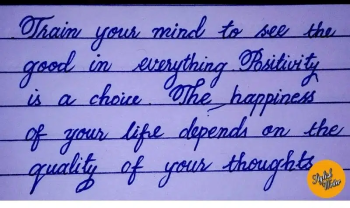 Train your mind to see the
good in everything. Positivity
is a choice. The happiness
of your life depends on the
quality of your thoughts